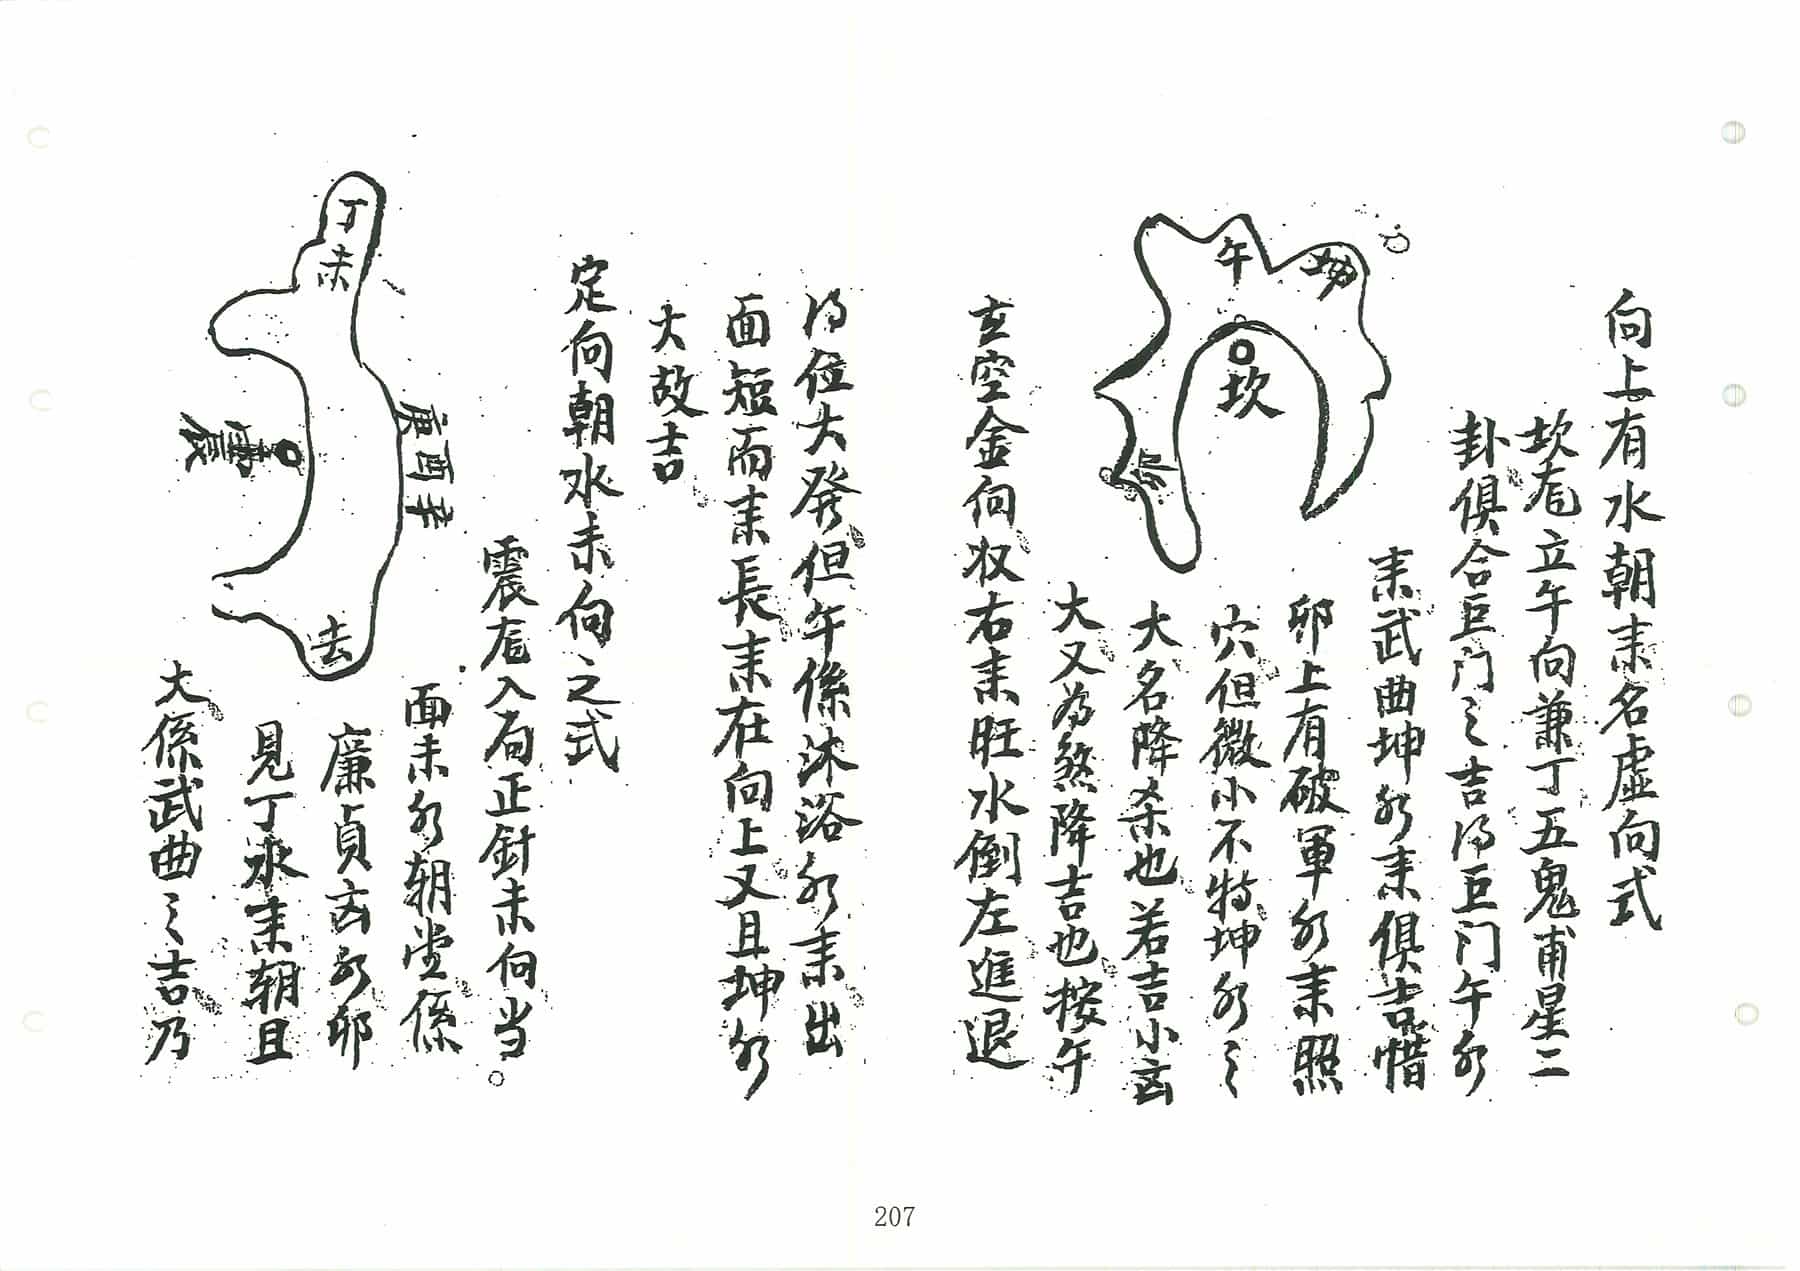 向上有水朝来名虚向式
坎龙立午向兼丁五鬼甫星二
卦俱合巨门之吉得巨门午水
来武曲坤水来俱吉惜
卯上有破軍水来照
穴但微小不特坤水之
大名降杀也若吉小凶
大又為煞降吉也按午
玄空金向收右来旺水倒左進退
午
坤
坎
卯
得位大発但午係沐浴水来出
面短而来長来在向上又且坤水
大故吉
定向朝水未向之式
震龙入局正針未向当
面未水朝堂係
廉貞凶水卯
見丁水来朝且
大係武曲之吉乃
丁未
庚酉辛
震
去
207